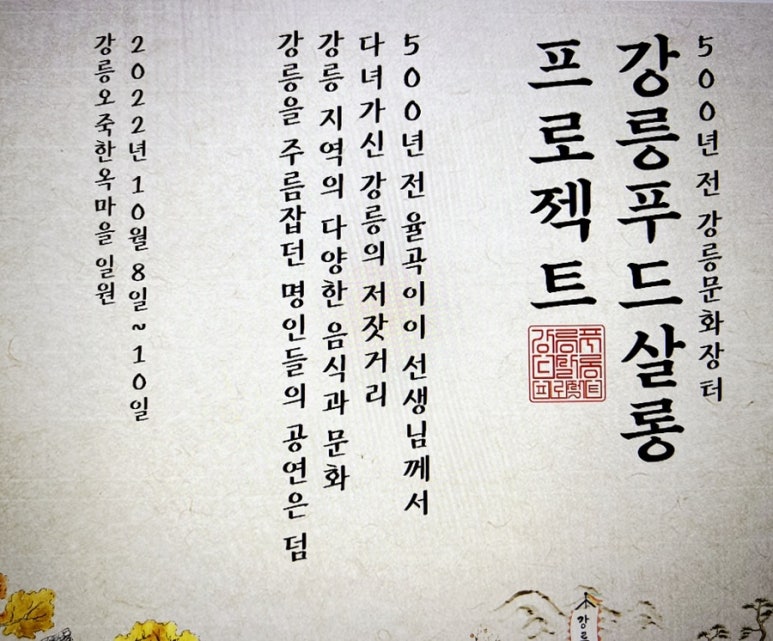 500년 전 강릉문화장터
강릉푸드살롱
프로젝트
500년 전 율곡이이 선생님께서
다녀가신 강릉의 저잣거리
강릉 지역의 다양한 음식과 문화
강릉을 주름잡던 명인들의 공연은 덤
2022년 10월 8일~10일
강릉오죽한옥마을 일원
강릉